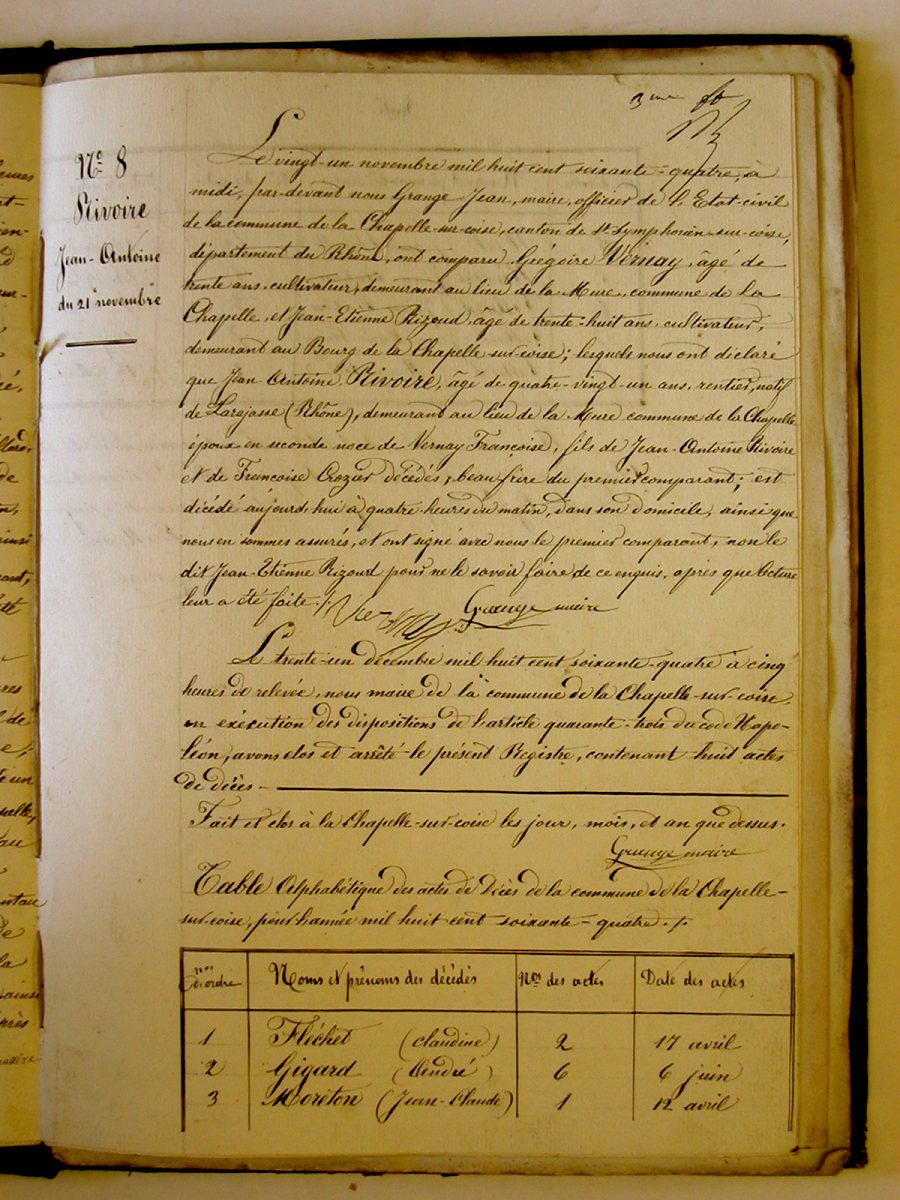 3me
No 8
Rivoire
Jean-Antoine
du 21 novembre
Le vingt-un novembre mil huit cent soixante-quatre, à
midi, par-devant nous Grange Jean, maire, officier de l'Etat-civil
de la commune de la Chapelle-sur-coise, canton de St Symphorien-sur-coise,
département du Rhône, ont comparu Grégoire Vernay, âgé de
trente ans, cultivateur, demeurant au lieu de la Mure, commune de La
Chapelle, et Jean-Etienne Rizoud, âgé de trente-huit ans, cultivateur,
demeurant au Bourg de la Chapelle-sur-coise; lesquels nous ont déclaré
que Jean-Antoine Rivoire, âgé de quatre-vingt-un ans, rentier, natif
de Larajasse (Rhône), demeurant au lieu de la Mure commune de la Chapelle
époux en seconde noce de Vernay Françoise, fils de Jean-Antoine Rivoire
et de Francoise Crozier décédés, beau frère du premier comparant; est
décédé aujourd'hui à quatre heures du matin, dans son domicile, ainsi que
nous en sommes assurés, et ont signé avec nous le premier comparant, non le
dit Jean-Etienne Rizoud pour ne le savoir faire de ce enquis, après que lecture
leur a été faite ./. Vernay Grange maire
Le trente-un décembre mil huit cent soixante-quatre à cinq
heures de relevée, nous maire de la commune de la Chapelle-sur-coise,
en exécution des dispositions de l'article quarante-trois du code Napo-
léon, avons clos et arrêté le présent Registre, contenant huit actes
de décès -
Fait et clos à la Chapelle-sur-coise les jour, mois, et an que dessus.
Grange maire
Table Alphabétique des actes de Décès de la commune de la Chapelle-
sur-coise, pour l'année mil huit cent soixante-quatre ./.
nos d'ordre Noms et prénoms des décédés Nos des actes Date des actes
1 Fléchet (Claudine) 2 17 avril
2 Gigard (André) 6 6 juin
3 Moreton (Jean-Claude) 1 12 avril